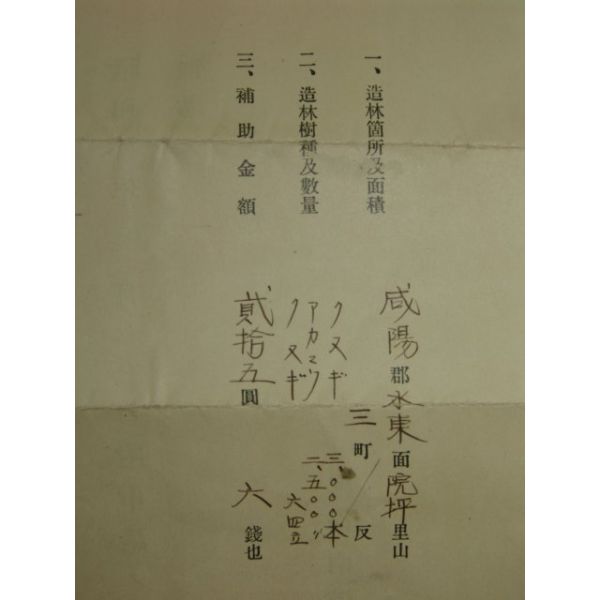 一、造林箇所及面積 咸陽郡水東面院坪里山
三町／反
二、造林樹種及數量 クヌギ 三、〇〇〇本
アカマツ 二、五〇〇〃
クヌギ 六四立
三、補助金額 貳拾五圓 六錢也